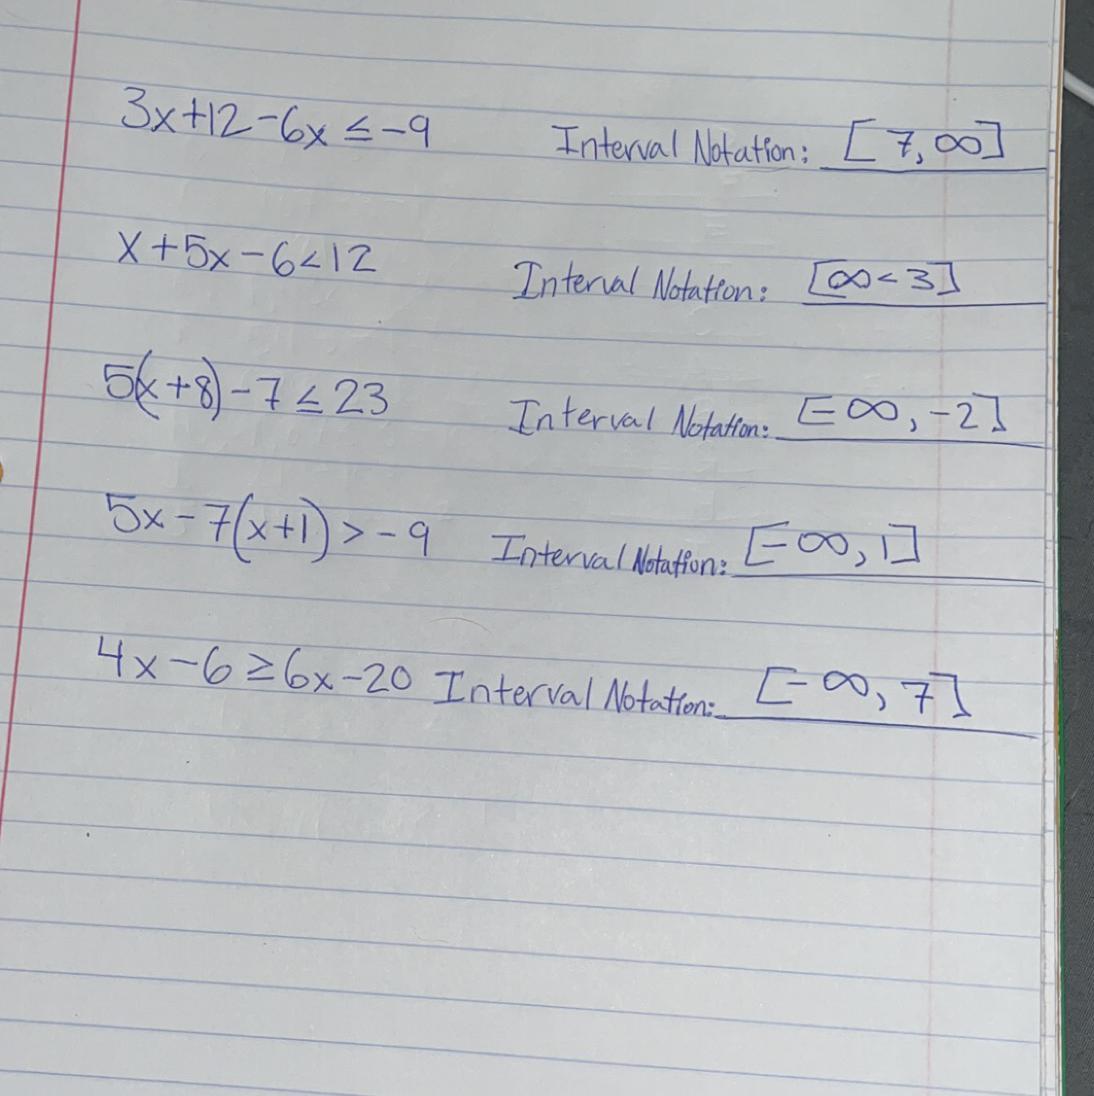 3x+12-6x ≤ -9 Interval Notation: [7,∞]
x+5x-6<12 Interval Notation: [∞<3]
5(x+8)-7≤23 Interval Notation: [-∞,-2]
5x-7(x+1)>-9 Interval Notation: [-∞,1]
4x-6≥6x-20 Interval Notation: [-∞,7]